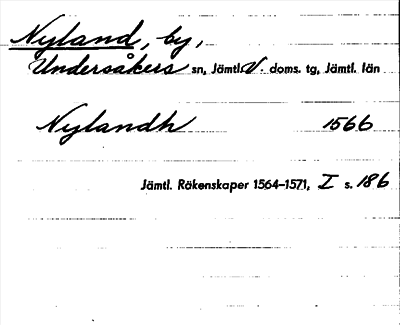 Nyland, by,
Undersåkers sn, Jämtl. V. doms. tg, Jämtl. län
Nylandh 1566
Jämtl. Räkenskaper 1564–1571, I s. 186